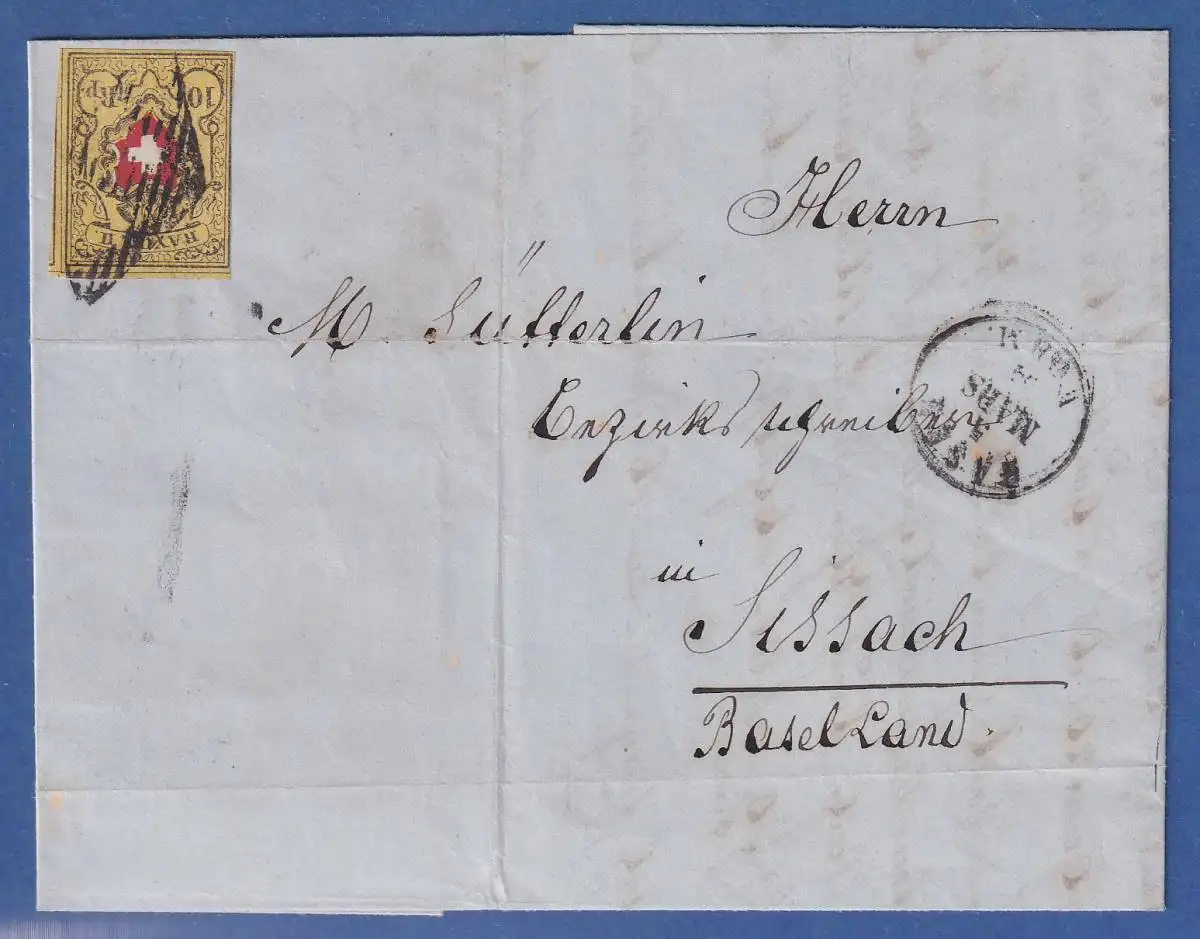 10 Rp
RAYON II
Herrn
M. Sütterlin
Bezirksschreiber
in
Sissach
Basel Land.
BASEL
MARS